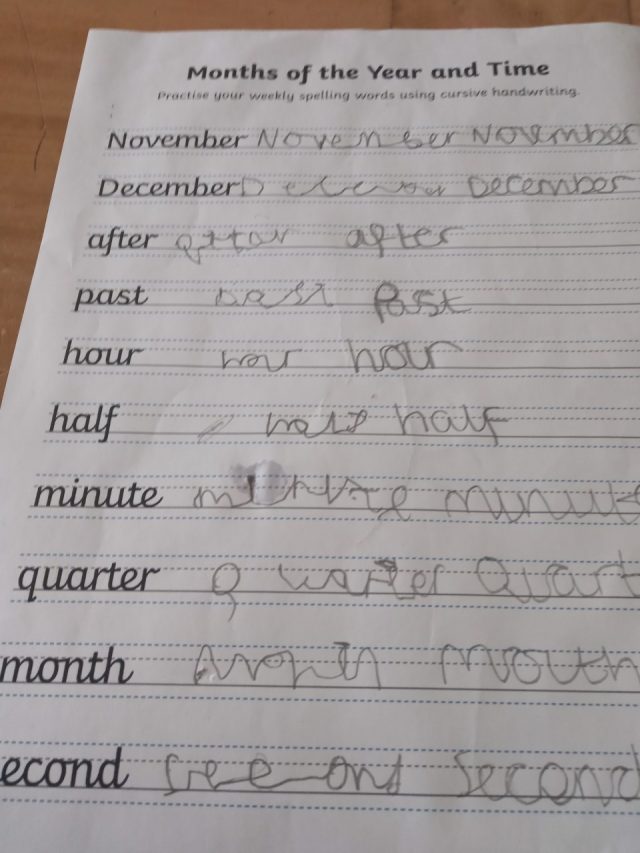 Months of the Year and Time
Practise your weekly spelling words using cursive handwriting.
November November November
December December
after after
past past
hour hour hour
half half half
minute minute minut
quarter quarter Quart
month month month
econd second